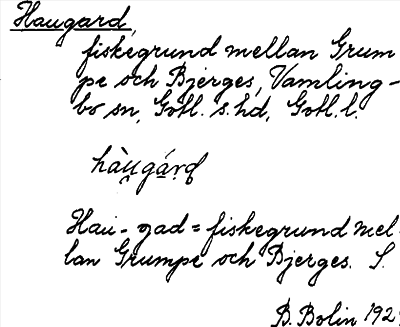 Haugard,
fiskegrund mellan Grum
pe och Bjerges, Vamling-
bo sn, Gotl. s. hd, Gotl. l.
hàu̯gárd
Hau-gad = fiskegrund mel-
lan Grumpe och Bjerges. S.
B. Bolin 192